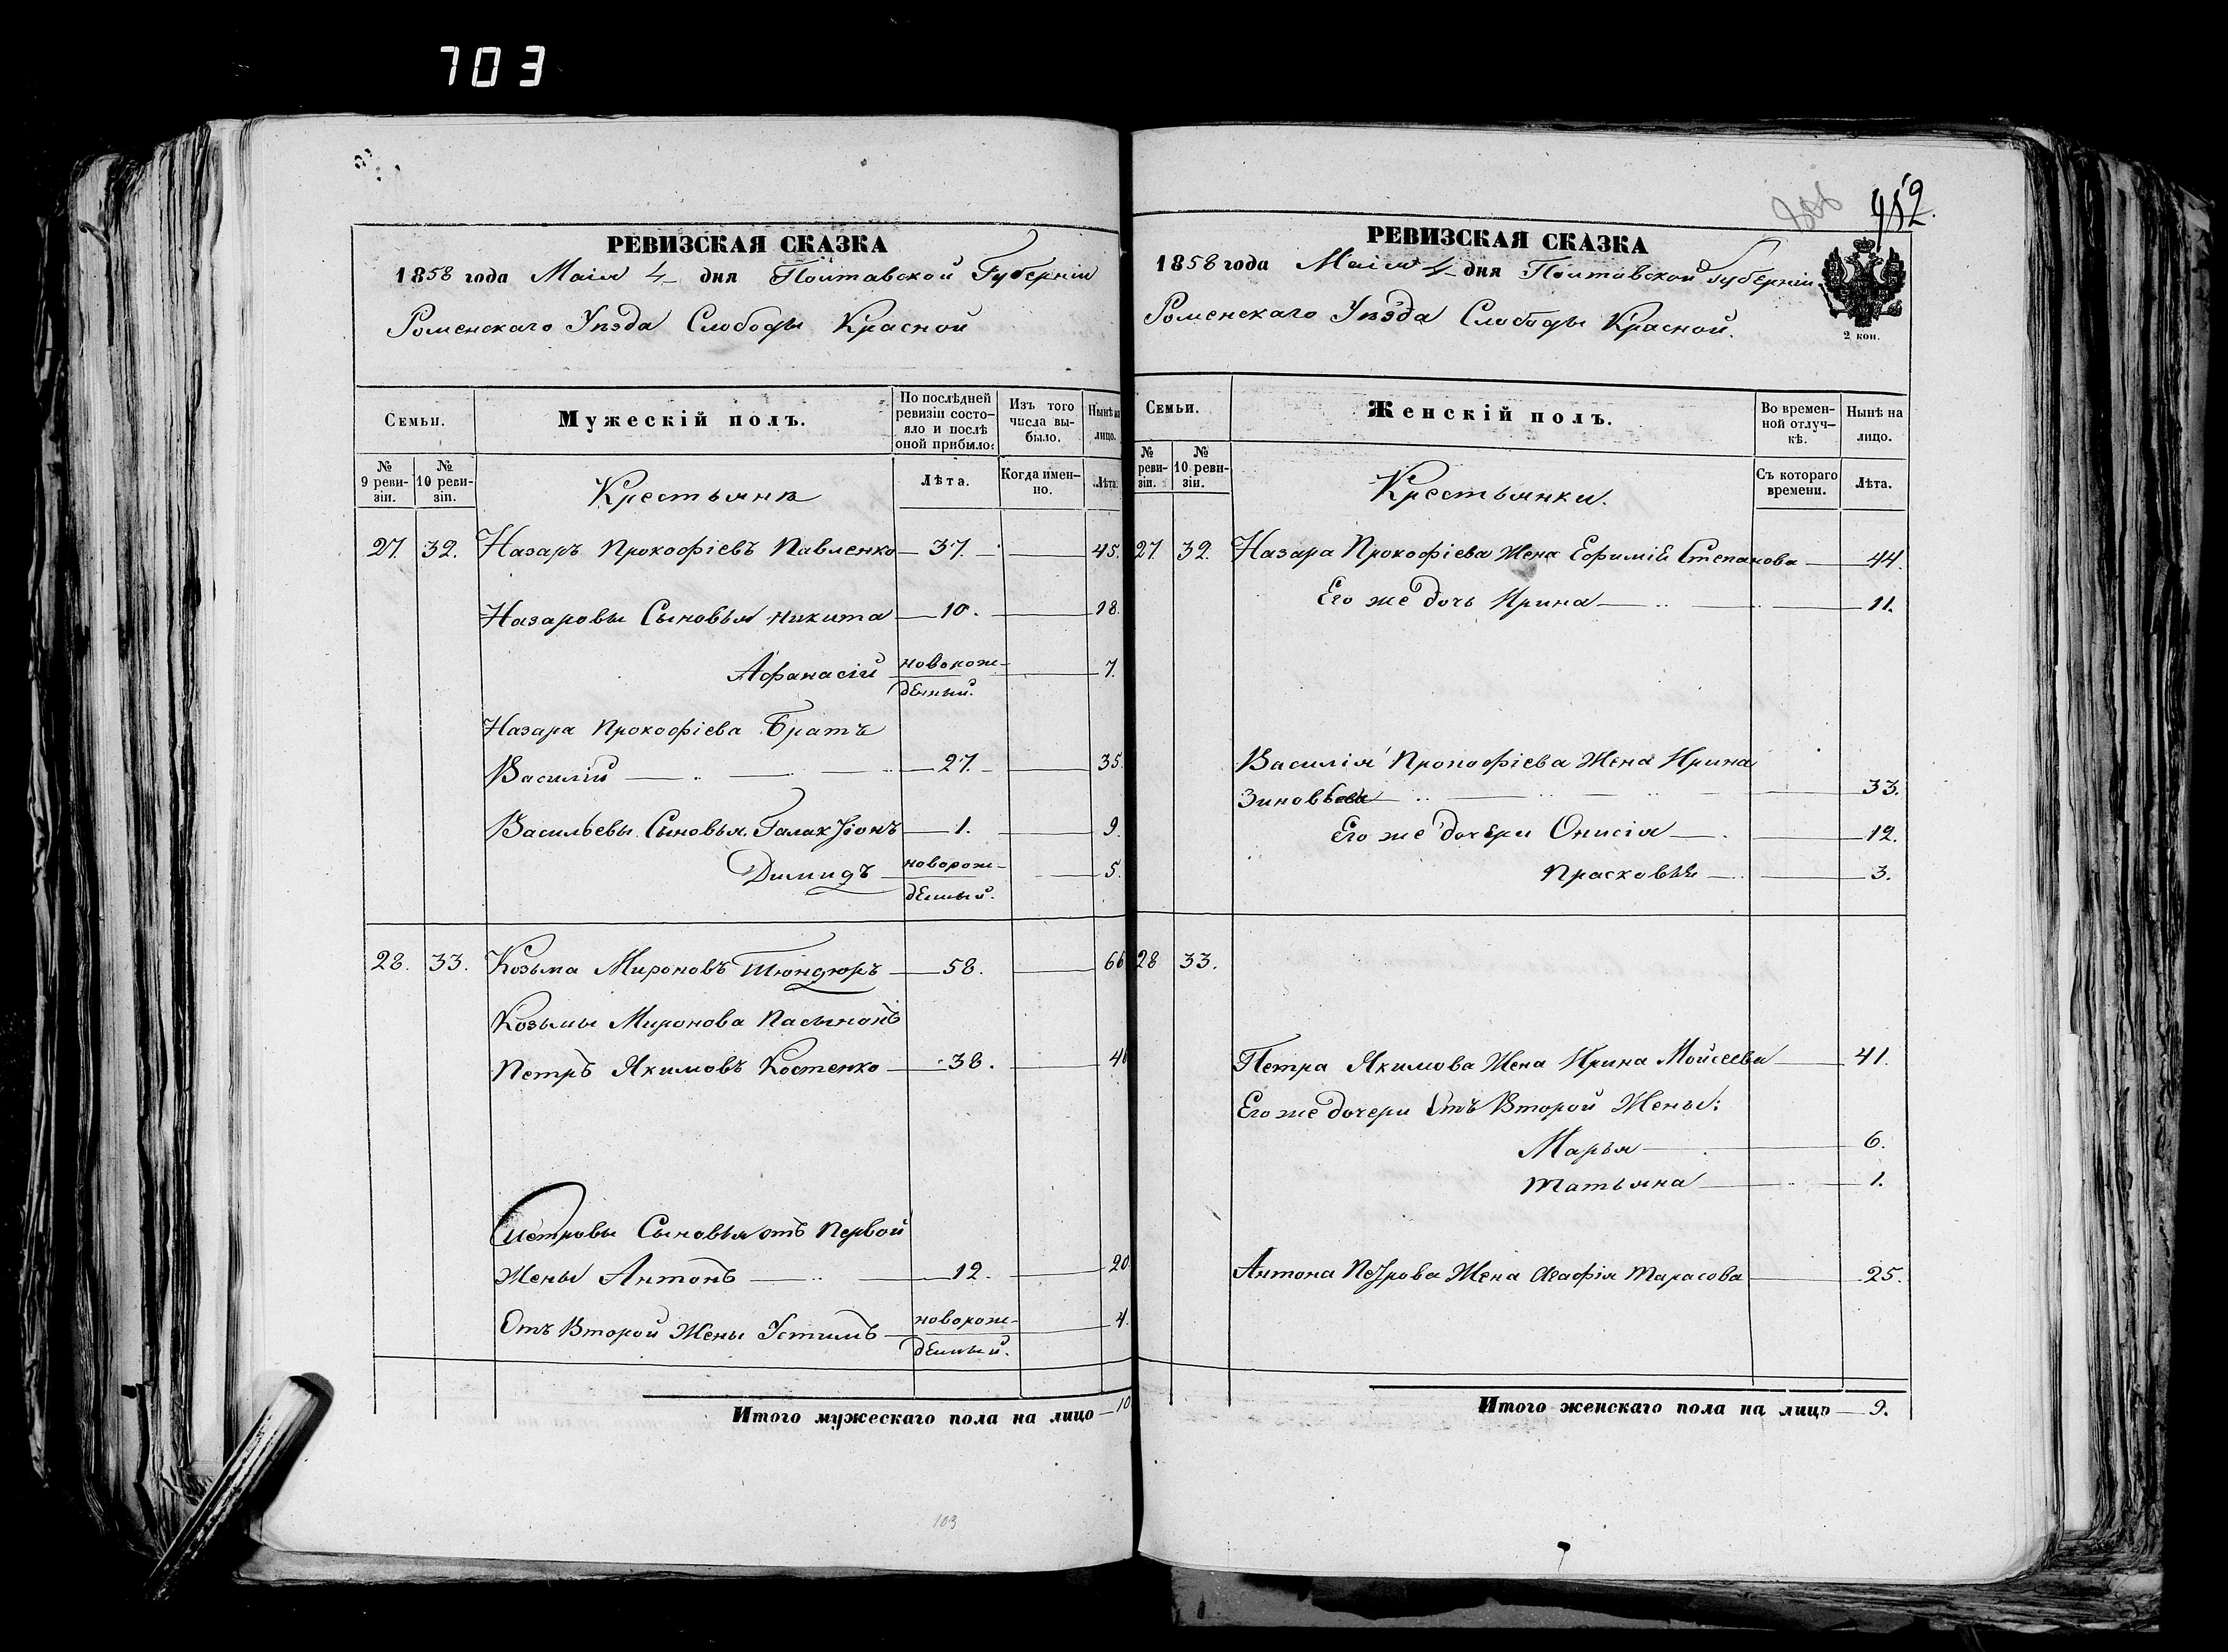 703
РЕВИЗСКАЯ СКАЗКА
1858 года Маія 4 дня Полтавской Губерніи
Роменскаго Уѣзда Слободы Красной
Семьи.
Мужескій полъ.
По послѣдней ревизіи состояло и послѣ оной прибыло.
Изъ того числа выбыло.
Нынѣ на лицо.
№ 9 ревизіи.
№ 10 ревизіи.
Крестьяне
Лѣта.
Когда именно.
Лѣта.
27. 32. Назаръ Прокофіевъ Павленко 37. 45.
Назаровы Сыновья Никита 10. 18.
Афанасій новорож-
денный. 7.
Назара Прокофіева Братъ
Василій 27. 35.
Васильевы Сыновья Галактіонъ 1. 9.
Димидъ новорож-
денный. 5.
28. 33. Козьма Мироновъ Тюндюръ 58. 66
Козьмы Миронова Пасынокъ
Петръ Якимовъ Костенко 38. 46
Петровы Сыновья отъ Первой
Жены Антонъ 12. 20
Отъ Второй Жены Устимъ новорож-
денный. 4.
Итого мужескаго пола на лицо 10
103
452.
РЕВИЗСКАЯ СКАЗКА
1858 года Маія 4 дня Полтавской Губерніи
Роменскаго Уѣзда Слободы Красной.
2 коп.
Семьи.
Женскій полъ.
Во временной отлучкѣ.
Нынѣ на лицо.
№ ревизіи.
№ 10 ревизіи.
Крестьянки.
Съ котораго времени.
Лѣта.
27 32. Назара Прокофіева Жена Ефимія Степанова 44.
Его же дочь Ирина 11.
Василія Прокофіева Жена Ирина
Зиновьева 33.
Его же дочери Онисія 12.
Прасковья 3.
28 33.
Петра Якимова Жена Ирина Мойсеева 41.
Его же дочери Отъ Второй Жены:
Марья 6.
Татьяна 1.
Антона Петрова Жена Агафія Тарасова 25.
Итого женскаго пола на лицо 9.